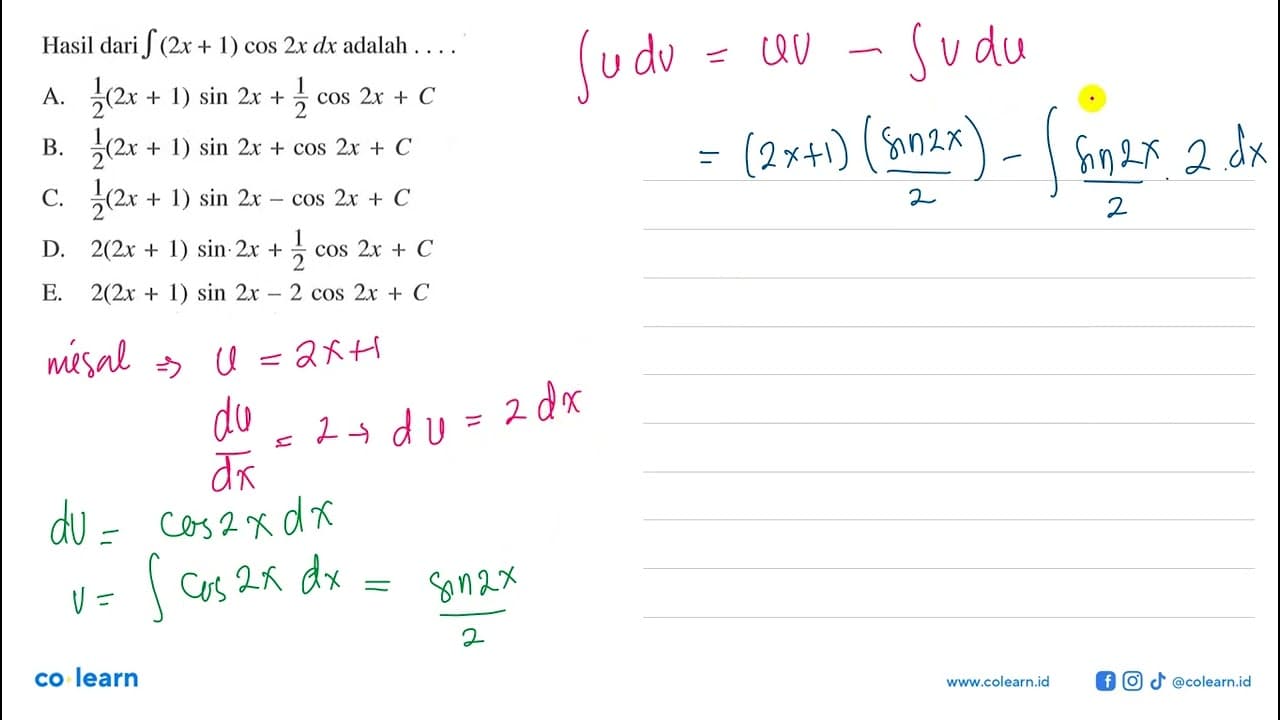 Hasil dari ∫ (2x + 1) cos 2x dx adalah . . . .
A. 1/2(2x + 1) sin 2x + 1/2 cos 2x + C
B. 1/2(2x + 1) sin 2x + cos 2x + C
C. 1/2(2x + 1) sin 2x − cos 2x + C
D. 2(2x + 1) sin 2x + 1/2 cos 2x + C
E. 2(2x + 1) sin 2x − 2 cos 2x + C
misal ⇒ u = 2x+1
du/dx = 2 → du = 2 dx
dv = cos 2x dx
v = ∫ cos 2x dx = sin 2x/2
∫ u dv = uv − ∫ v du
= (2x+1) (sin 2x/2) − ∫ sin 2x/2 . 2 . dx
co learn
www.colearn.id
@colearn.id